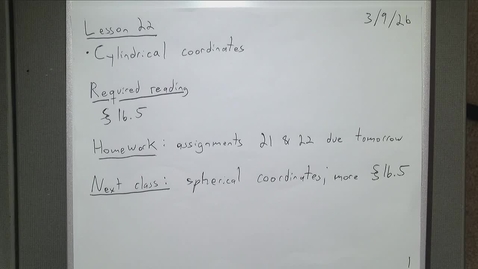 Lesson 22
3/9/26
• Cylindrical coordinates
Required reading
§ 16.5
Homework: assignments 21 & 22 due tomorrow
Next class: spherical coordinates; more § 16.5
1